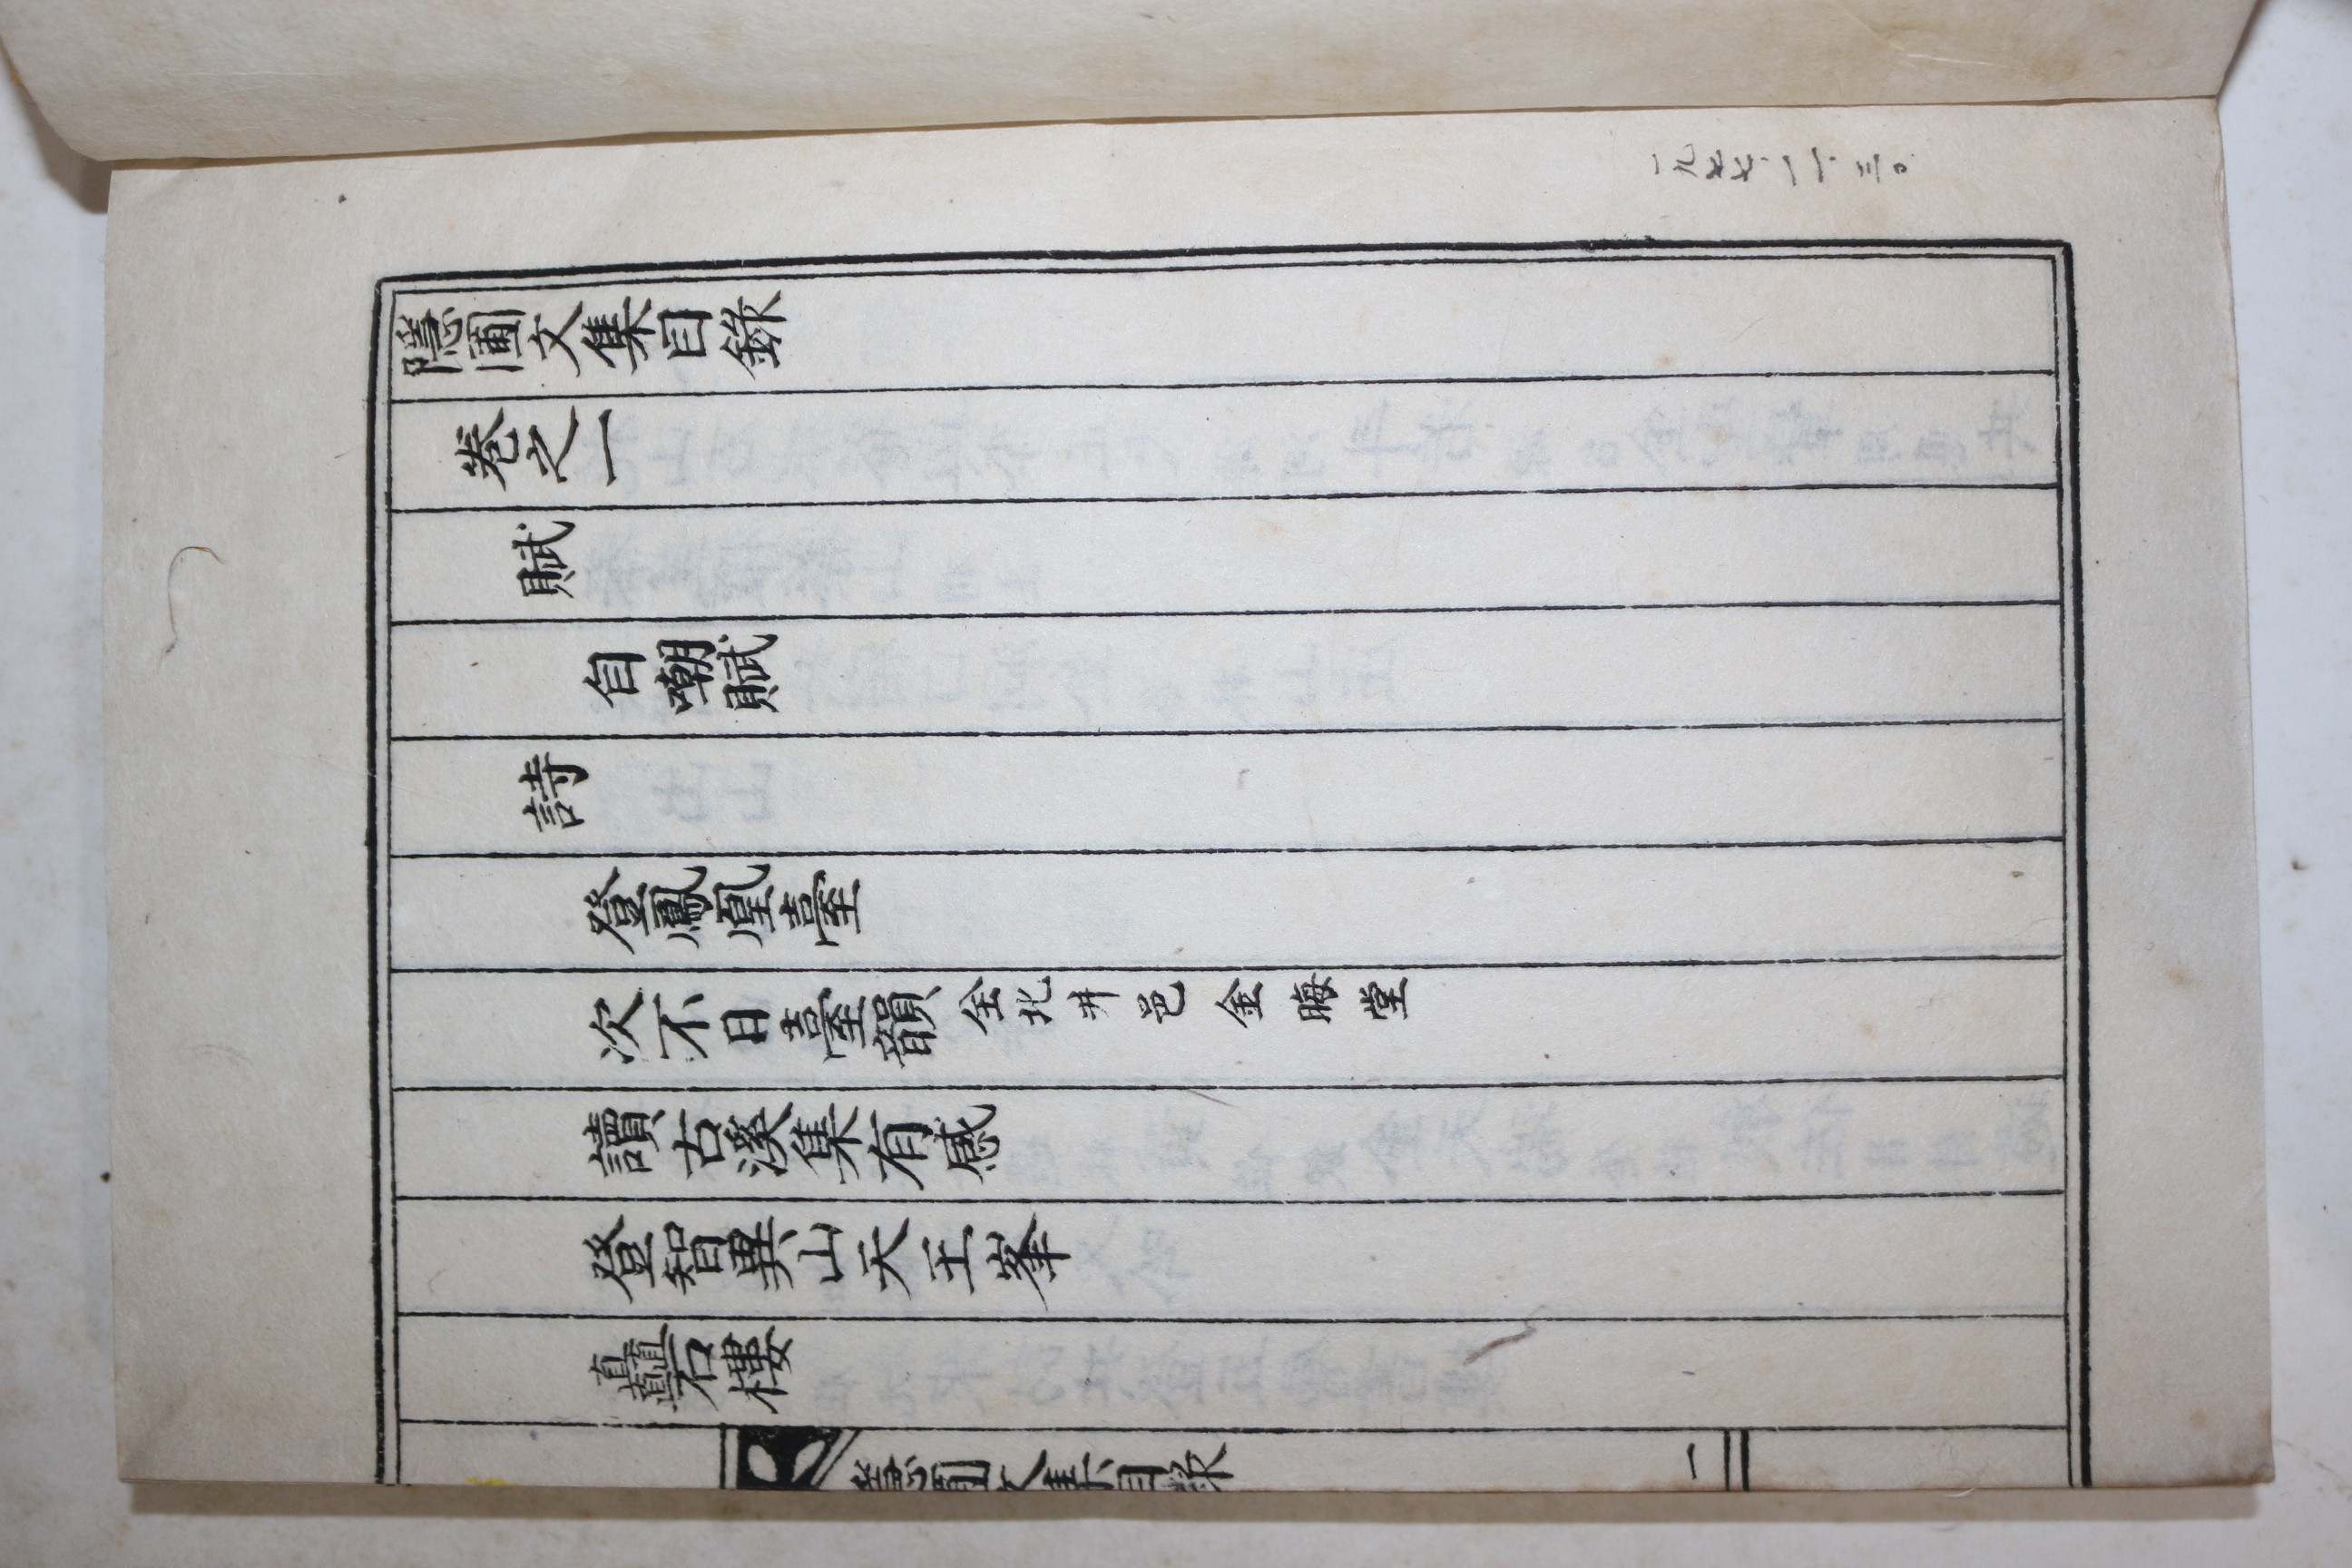 一九七七、一一、三〇
隱圃文集目錄
卷之一
賦
自嘲賦
詩
登鳳凰臺
次不日臺韻 全北井邑 金晦堂
讀古溪集有感
登智異山天王峯
矗石樓
隱圃文集目錄 一